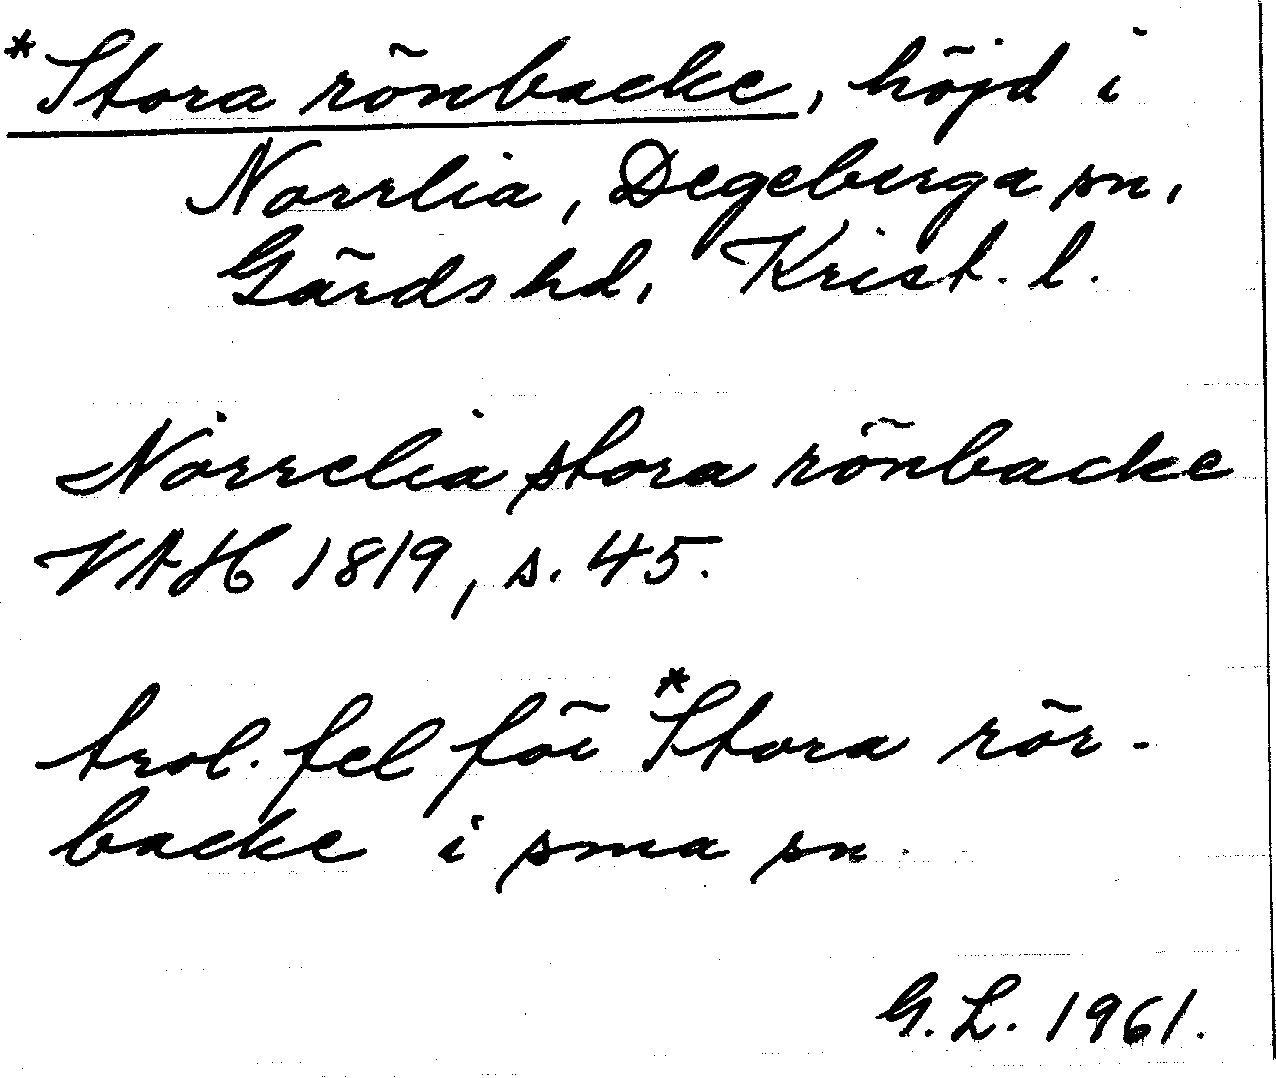 *Stora rönbacke, höjd i
Norrlia, Degeberga sn,
Gärds hd, Krist. l.
Norrelia stora rönbacke
VAH 1819, s. 45.
trol. fel för *Stora rör-
backe i sma sn.
G. L. 1961.